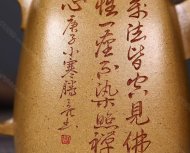 万法皆空見佛
性一塵不染照禪
心
庚子小寒騰之